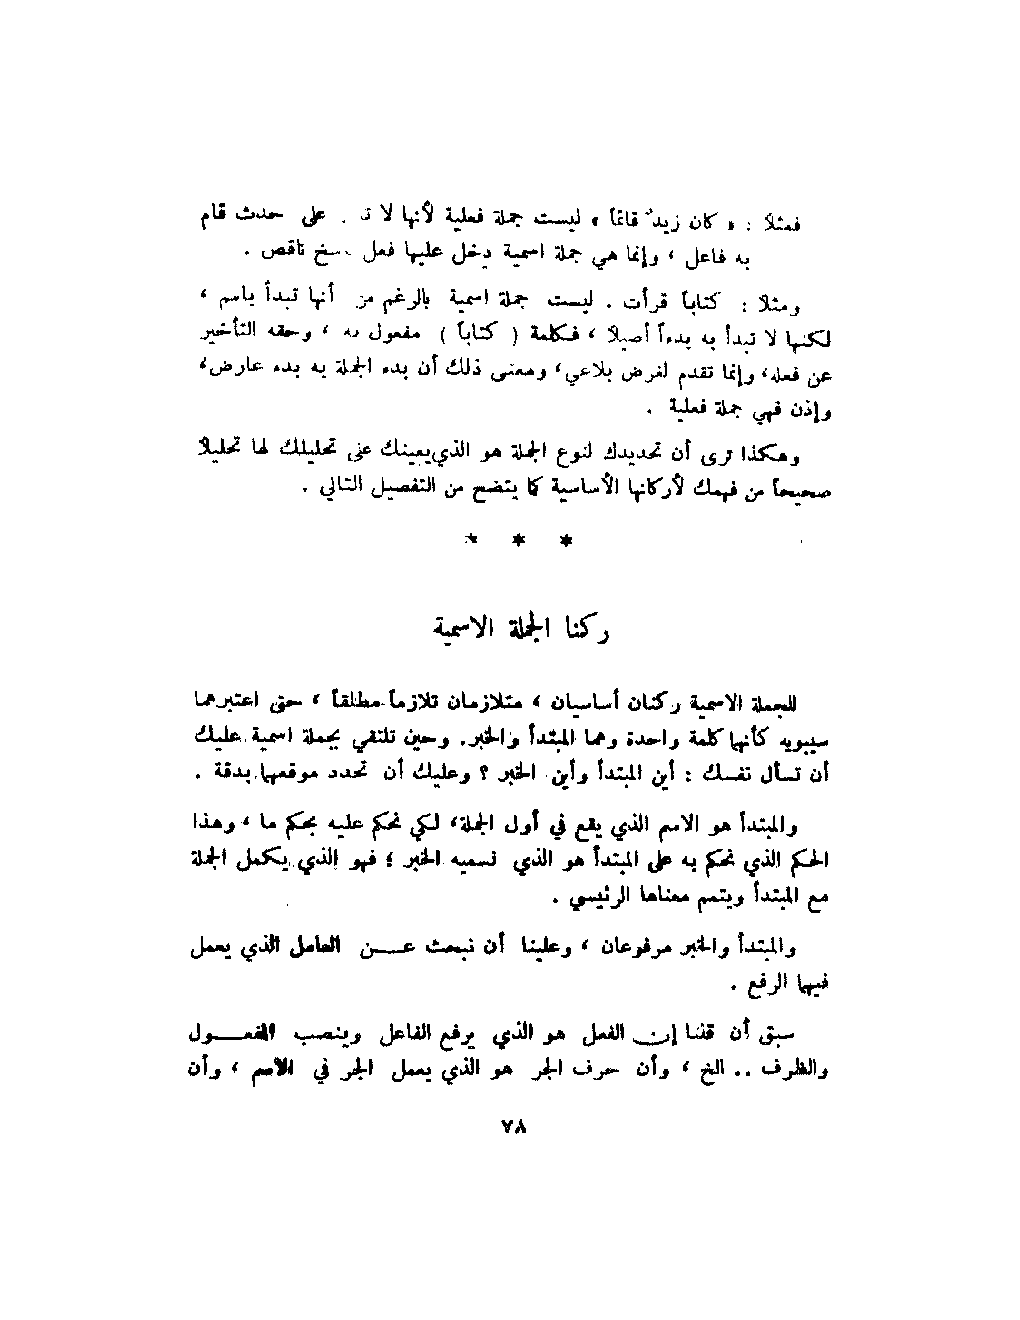 فمثلاً : « كان زيدٌ قائماً » ليست جملة فعلية لأنها لا على حدث قام
به فاعل ، وإنما هي جملة اسمية دخل عليها فعل ناقص .
ومثلا : كتاباً قرأت . ليست جملة اسمية بالرغم من أنها تبدأ باسم ،
لكنها لا تبدأ به بدءاً أصيلا ، فكلمة ( كتاباً ) مفعول به ، وحقه التأخير
عن فعله، وإنما تقدم لغرض بلاغي، ومعنى ذلك أن بدء الجملة به بدء عارض،
وإذن فهي جملة فعلية .
وهكذا ترى أن تحديدك لنوع الجملة هو الذي يعينك على تحليلك لها تحليلاً
صحيحاً من فهمك لأركانها الأساسية كما يتضح من التفصيل التالي .
* * *
ركنا الجملة الاسمية
للجملة الاسمية ركنان أساسيان ، متلازمان تلازماً مطلقاً ، حتى اعتبرهما
سيبويه كأنها كلمة واحدة وهما المبتدأ والخبر. وحين تلتقي بجملة اسمية عليك
أن تسأل نفسك : أين المبتدأ وأين الخبر ؟ وعليك أن تحدد موقعها بدقة .
والمبتدأ هو الاسم الذي يقع في أول الجملة، لكي نحكم عليه بحكم ما ، وهذا
الحكم الذي نحكم به على المبتدأ هو الذي نسميه الخبر ؛ فهو الذي يكمل الجملة
مع المبتدأ ويتمم معناها الرئيسي .
والمبتدأ والخبر مرفوعان ، وعلينا أن نبحث عــن العامل الذي يعمل
فيها الرفع .
سبق أن قلنا إن الفعل هو الذي يرفع الفاعل وينصب المفعــول
والظرف .. الخ ، وأن حرف الجر هو الذي يعمل الجر في الاسم ، وأن
٧٨